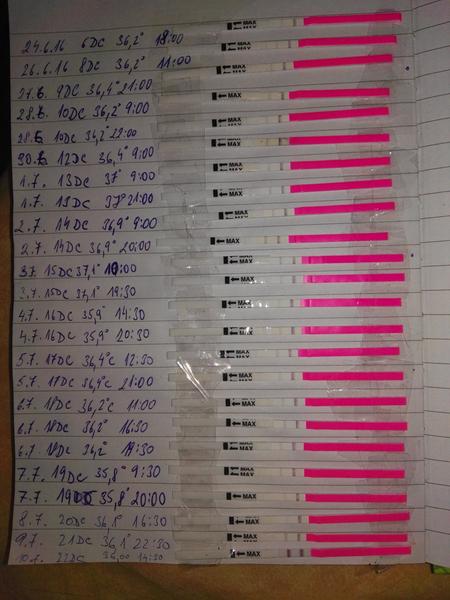 ← MAX
24.6.16 6DC 36,2° 18:00 ← MAX
26.6.16 8DC 36,2° 11:00 ← MAX
27.6. 9DC 36,4° 21:00 ← MAX
28.6. 10DC 36,2° 9:00 ← MAX
28.6 10DC 36,2° 22:00 ← MAX
30.6 12DC 36,4° 9:00 ← MAX
1.7. 13DC 37° 9:00 ← MAX
1.7. 13DC 37° 21:00 ← MAX
2.7. 14DC 36,9° 9:00
2.7. 14DC 36,9° 20:00 ← MAX
3.7. 15DC 37,1° :00 ← MAX
3.7. 15DC 37,1° 19:30 ← MAX
4.7. 16DC 35,9° 14:30 ← MAX
4.7. 16DC 35,9° 20:30 ← MAX
5.7. 17DC 36,4°C 12:30 ← MAX
5.7. 17DC 36,4°C 21:00 ← MAX
6.7. 18DC 36,2°C 11:00 ← MAX
6.7. 18DC 36,2° 16:30 ← MAX
6.7. 18DC 36,2° 19:30 ← MAX
7.7. 19DC 35,8° 9:30 ← MAX
7.7. 19 35,8° 20:00 ← MAX
8.7. 20DC 36,1° 16:30 ← MAX
9.7. 21DC 36,1° 22:30 ← MAX
10.7. 22DC 36,00 14:30 ← MAX